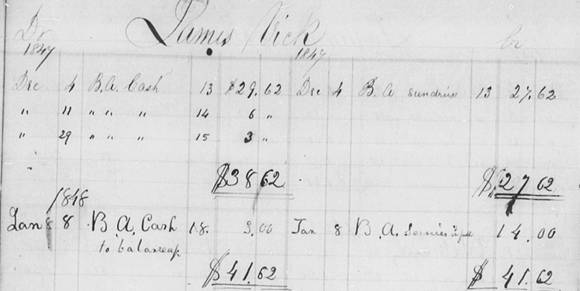 Dr James Vick Cr
1847 1847
Dec 4 B.A. Cash 13 $29.62 Dec 4 B.A. sundries 13 27.62
" 11 " " " 14 6 "
" 29 " " " 15 3 "
$38 62 $27 62
1848
Jan 8 8 B.A. Cash 18. 3.00 Jan 8 B.A. 14.00
to balance
$41.62 $41.62